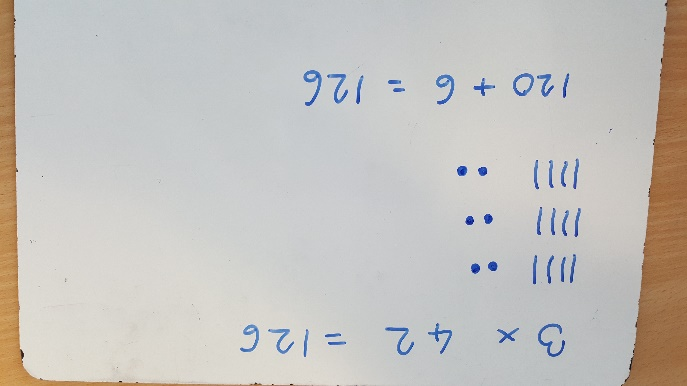 3 × 42 = 126
120 + 6 = 126